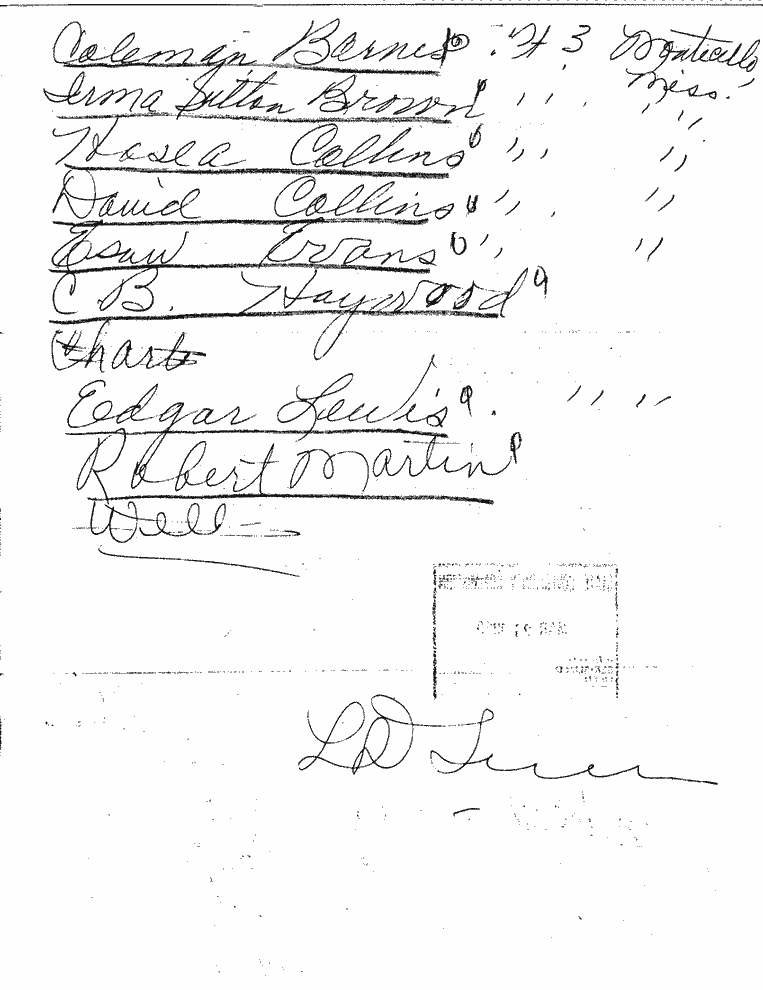 Coleman Barnes Rt 3 Monticello,
Miss.
Irma Sutton Brown " "
Hosea Collins " "
David Collins " "
Esaw Evans " "
C B. Haywood
Edgar Lewis. " "
Robert Martin
Well
LD